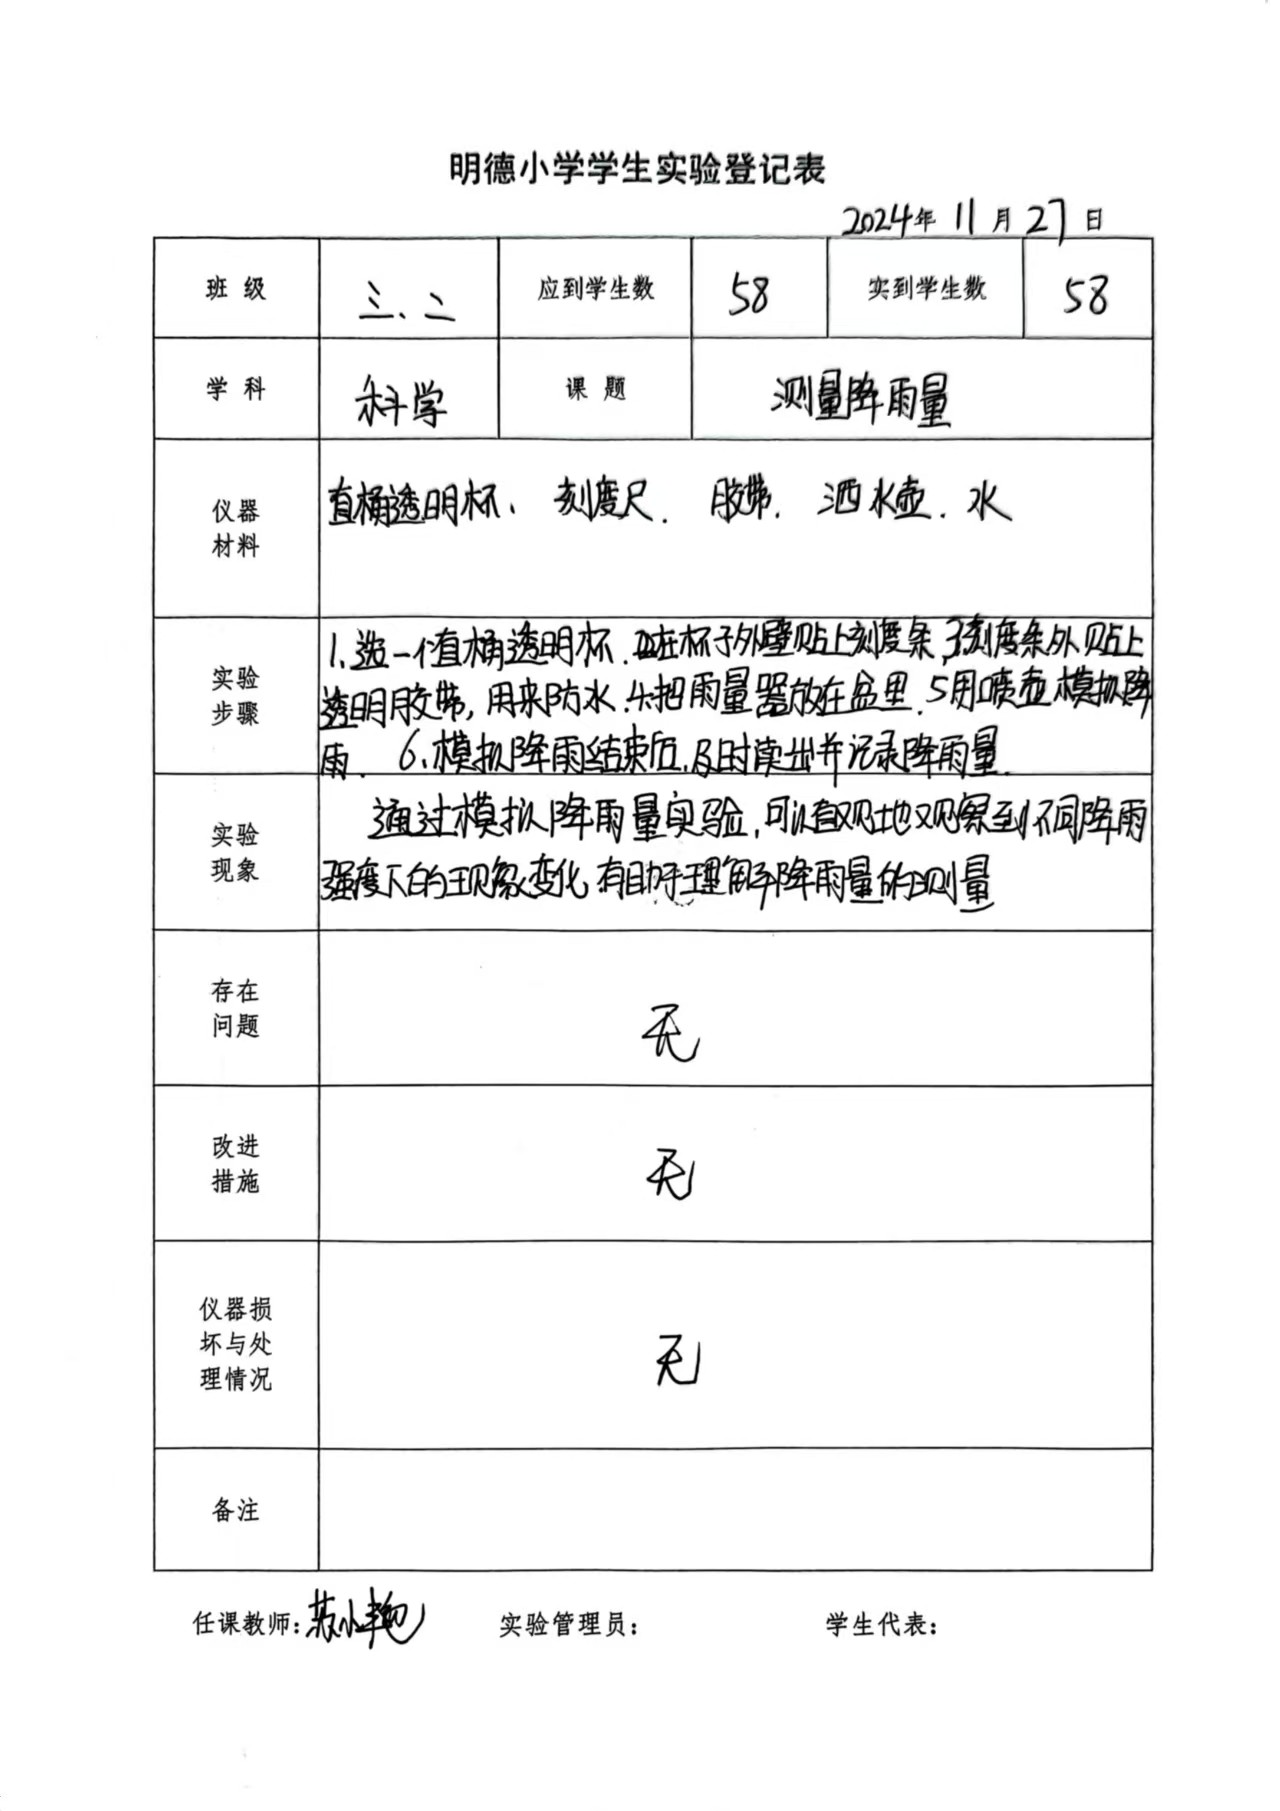 明德小学学生实验登记表
2024年 11 月 27 日
班 级 三、二 应到学生数 58 实到学生数 58
学 科 科学 课 题 测量降雨量
仪器
材料
直桶透明杯、 刻度尺. 胶带. 洒水壶. 水
实验
步骤
1.选一个直桶透明杯.2在杯子外壁贴上刻度条,3刻度条外贴上
透明胶带,用来防水.4.把雨量器放在盆里.5用喷壶模拟降
雨. 6.模拟降雨结束后,及时读出并记录降雨量.
实验
现象
通过模拟降雨量实验,可以直观地观察到不同降雨
强度下的现象变化,有助于理解降雨量的测量
存在
问题
无
改进
措施
无
仪器损
坏与处
理情况
无
备注
任课教师:苏小艳 实验管理员: 学生代表: